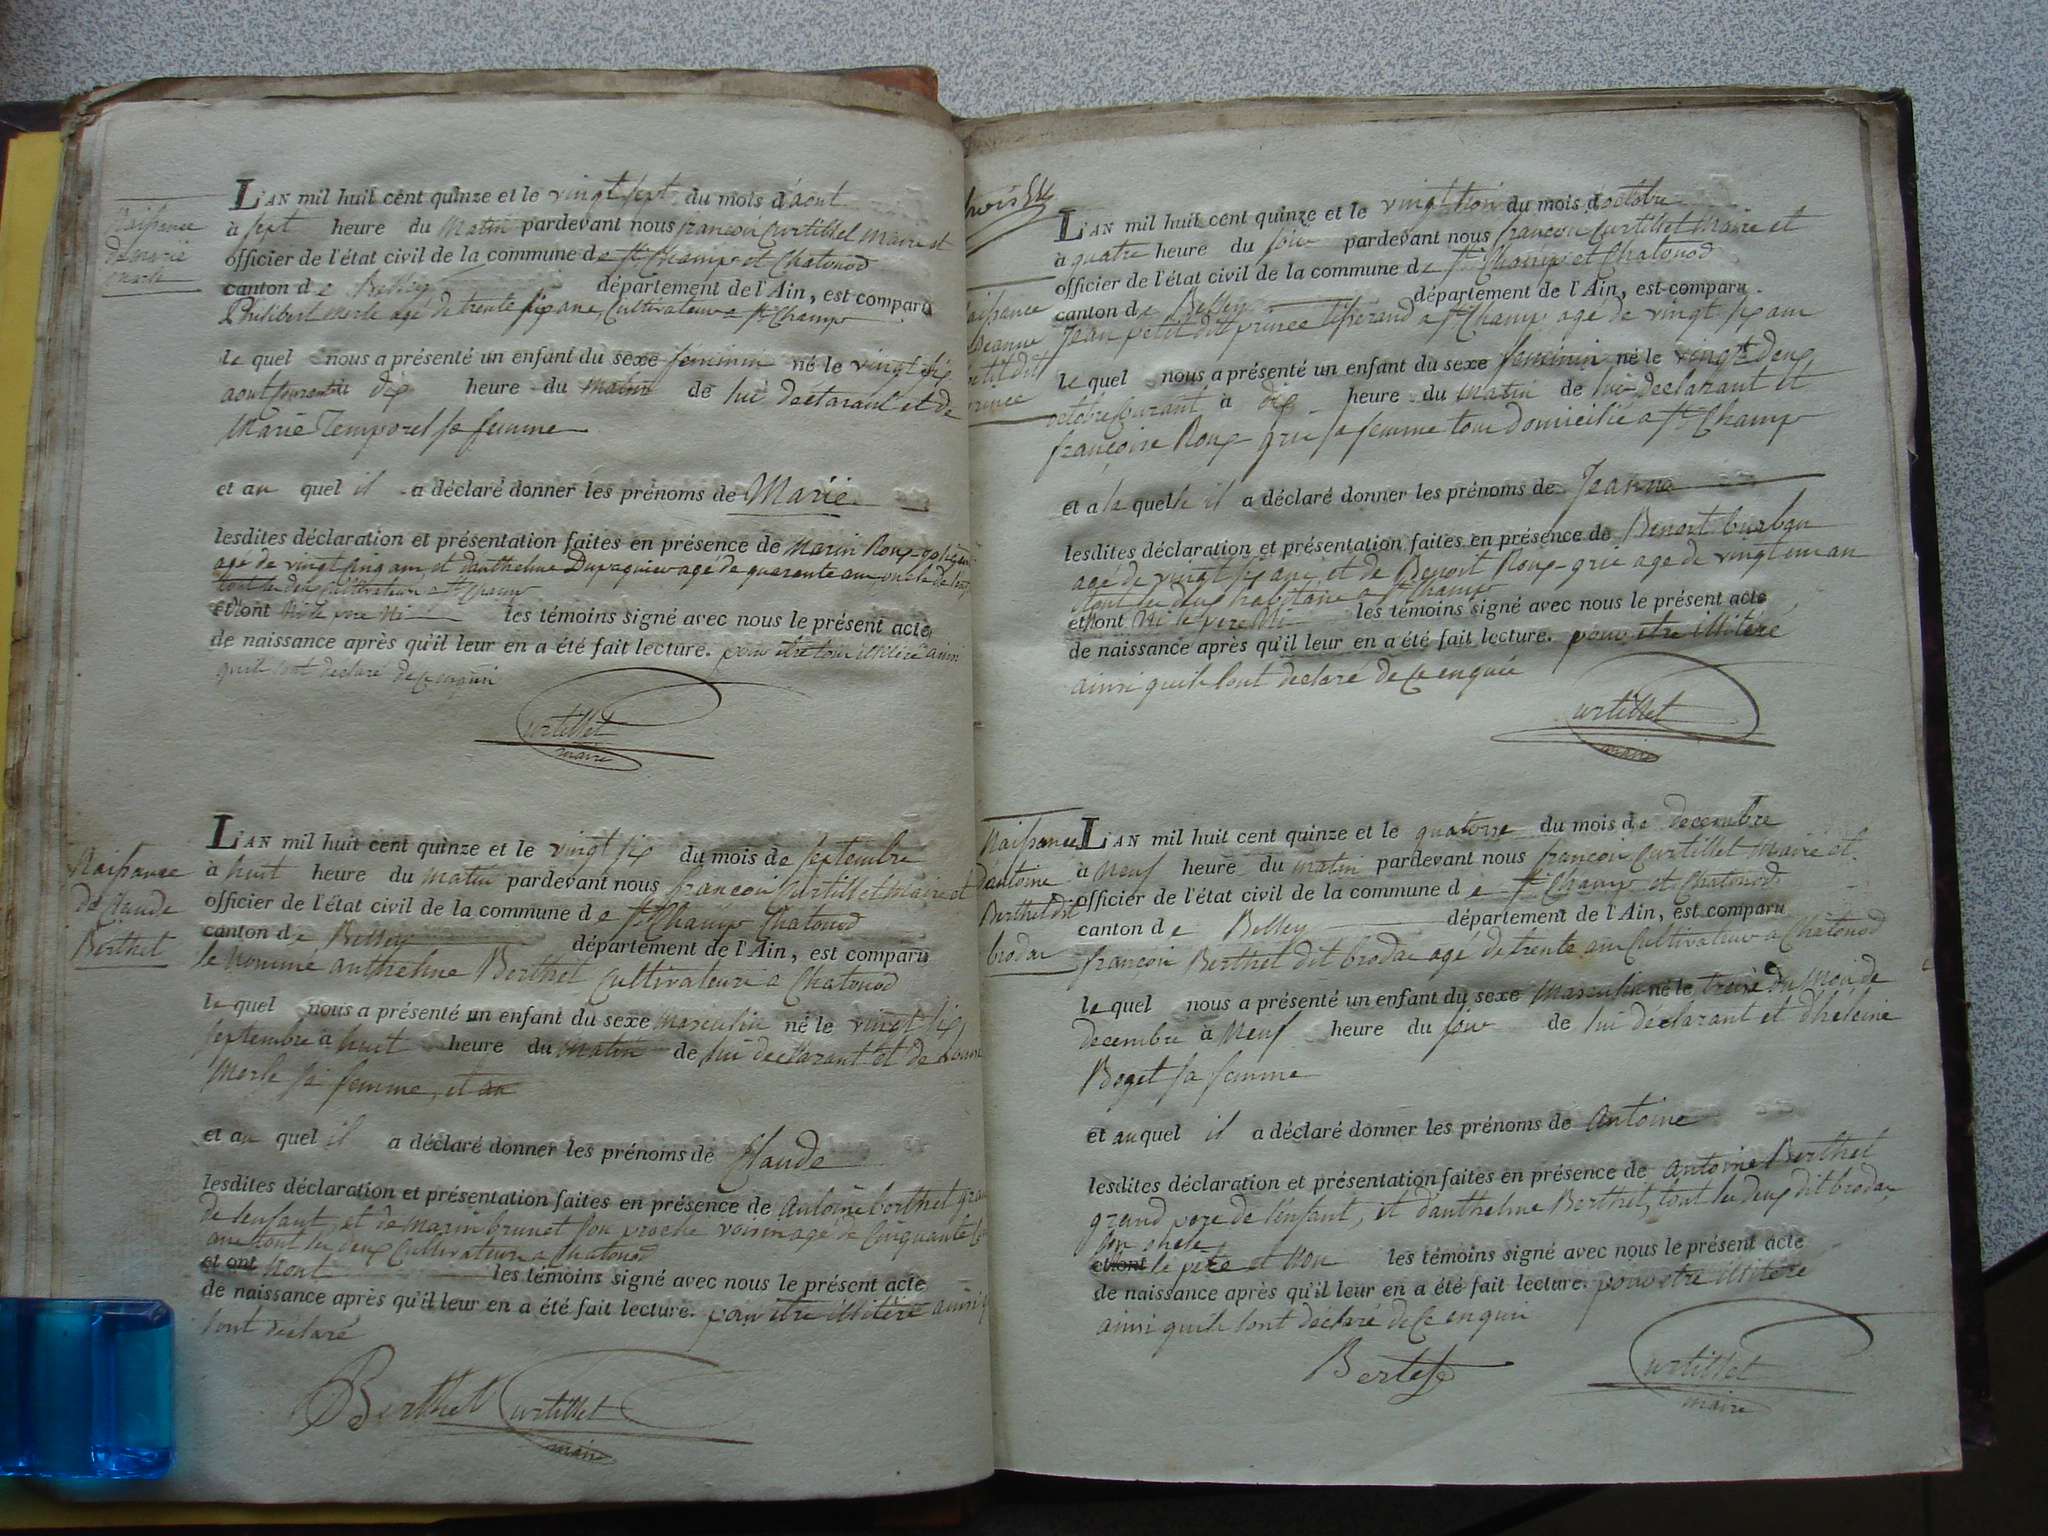 Naissance
de marie
merle
L'AN mil huit cent quinze et le vingt sept du mois d'aout
à sept heure du matin pardevant nous francois Curtillet maire et
officier de l'état civil de la commune de St Champ et Chatonod
canton de Belley département de l'Ain, est comparu
Philibert merle agé de trente six ans, Cultivateur a St Champ
le quel nous a présenté un enfant du sexe feminin né le vingt six
aout courant à dix heure du matin de lui declarant et de
Marie Temporel sa femme
et au quel il a déclaré donner les prénoms de Marie
lesdites déclaration et présentation faites en présence de Marin Roux
agé de vingt cinq ans, et d'anthelme Dupaquier agé de quarente ans oncle de
tout les deux Cultivateur a St Champ
et ont les témoins signé avec nous le présent acte
de naissance après qu'il leur en a été fait lecture. pour être tous illitéré ainsi
quils lont declaré de ce enquri
Curtillet
maire
Naissance
de Claude
Berthet
L'AN mil huit cent quinze et le vingt six du mois de septembre
à huit heure du matin pardevant nous francois Curtillet maire et
officier de l'état civil de la commune de St Champ Chatonod
canton de Belley département de l'Ain, est comparu
le nommé anthelme Berthet Cultivateur a Chatonod
le quel nous a présenté un enfant du sexe masculin né le vingt six
septembre à huit heure du matin de lui declarant et de
Merle sa femme, et au
et au quel il a déclaré donner les prénoms de Claude
lesdites déclaration et présentation faites en présence de antoine berthet
de lenfant, et de marin brunet son proche voisin agé de Cinquante
ans tout les deux Cultivateur a Chatonod
et ont non les témoins signé avec nous le présent acte
de naissance après qu'il leur en a été fait lecture. pour être illitéré ainsi
lont déclaré
Berthet Curtillet
maire
Naissance
Jeanne
petit dit
prince
L'AN mil huit cent quinze et le vingt trois du mois d'octobre
à quatre heure du soir pardevant nous francois Curtillet Maire et
officier de l'état civil de la commune de St Champ et Chatonod
canton de Belley département de l'Ain, est comparu
Jean petit dit prince tisserand a St Champ agé de vingt six ans
le quel nous a présenté un enfant du sexe feminin né le vingt deux
octobre Courant à dix heure du matin de lui declarant et
françoise Roux grie sa femme tous domicilié a St Champ
et a la quelle il a déclaré donner les prénoms de Jeanne
lesdites déclaration et présentation faites en présence de Benoit burban
agé de vingt six ans, et de Benoit Roux grie agé de vingt un an
tout les deux habitans a St Champ
et ont ni le pere ni les témoins signé avec nous le présent acte
de naissance après qu'il leur en a été fait lecture. pour être illitéré
ainsi quils lont declaré de ce enquie
Curtillet
maire
Naissance
d'antoine
Berthet dit
brodar
L'AN mil huit cent quinze et le quatorse du mois de decembre
à Neuf heure du matin pardevant nous francois Curtillet Maire et
officier de l'état civil de la commune de St Champ et Chatonod
canton de Belley département de l'Ain, est comparu
francois Berthet dit brodar agé de trente ans Cultivateur a Chatonod
le quel nous a présenté un enfant du sexe Masculin né le treise du mois de
decembre à Neuf heure du soir de lui declarant et d'heleine
Boget sa femme
et au quel il a déclaré donner les prénoms de antoine
lesdites déclaration et présentation faites en présence de antoine Berthet
grand pere de l'enfant, et d'anthelme Berthet, tout les deux dit brodar
son oncle
et ont le père et non les témoins signé avec nous le présent acte
de naissance après qu'il leur en a été fait lecture. pour etre illitéré
ainsi quils lont déclaré de ce enquri
Curtillet
maire